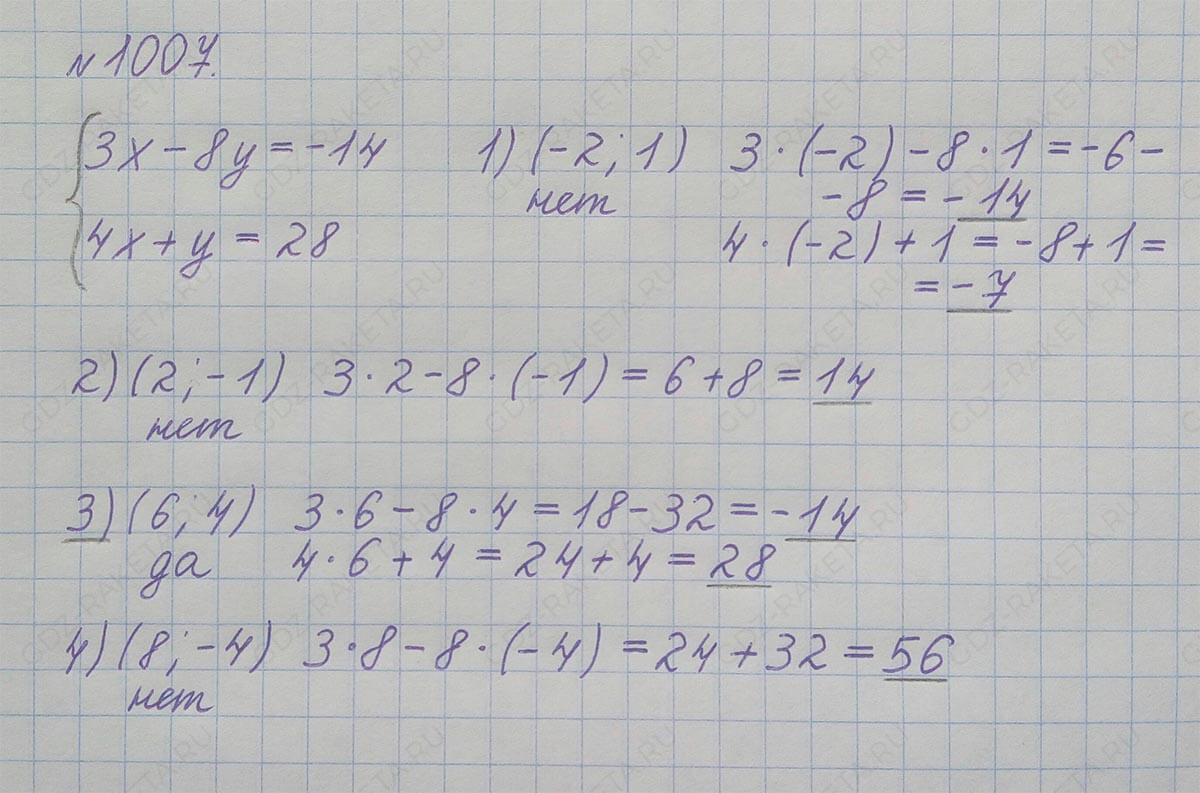 №1007.
{3x-8y=-14 1) (-2; 1) 3·(-2)-8·1=-6-
нет -8=-14
4x+y=28 4·(-2)+1=-8+1=
=-7
2) (2; -1) 3·2-8·(-1)=6+8=14
нет
3) (6; 4) 3·6-8·4=18-32=-14
да 4·6+4=24+4=28
4) (8; -4) 3·8-8·(-4)=24+32=56
нет
GDZ-RAKETA.RU